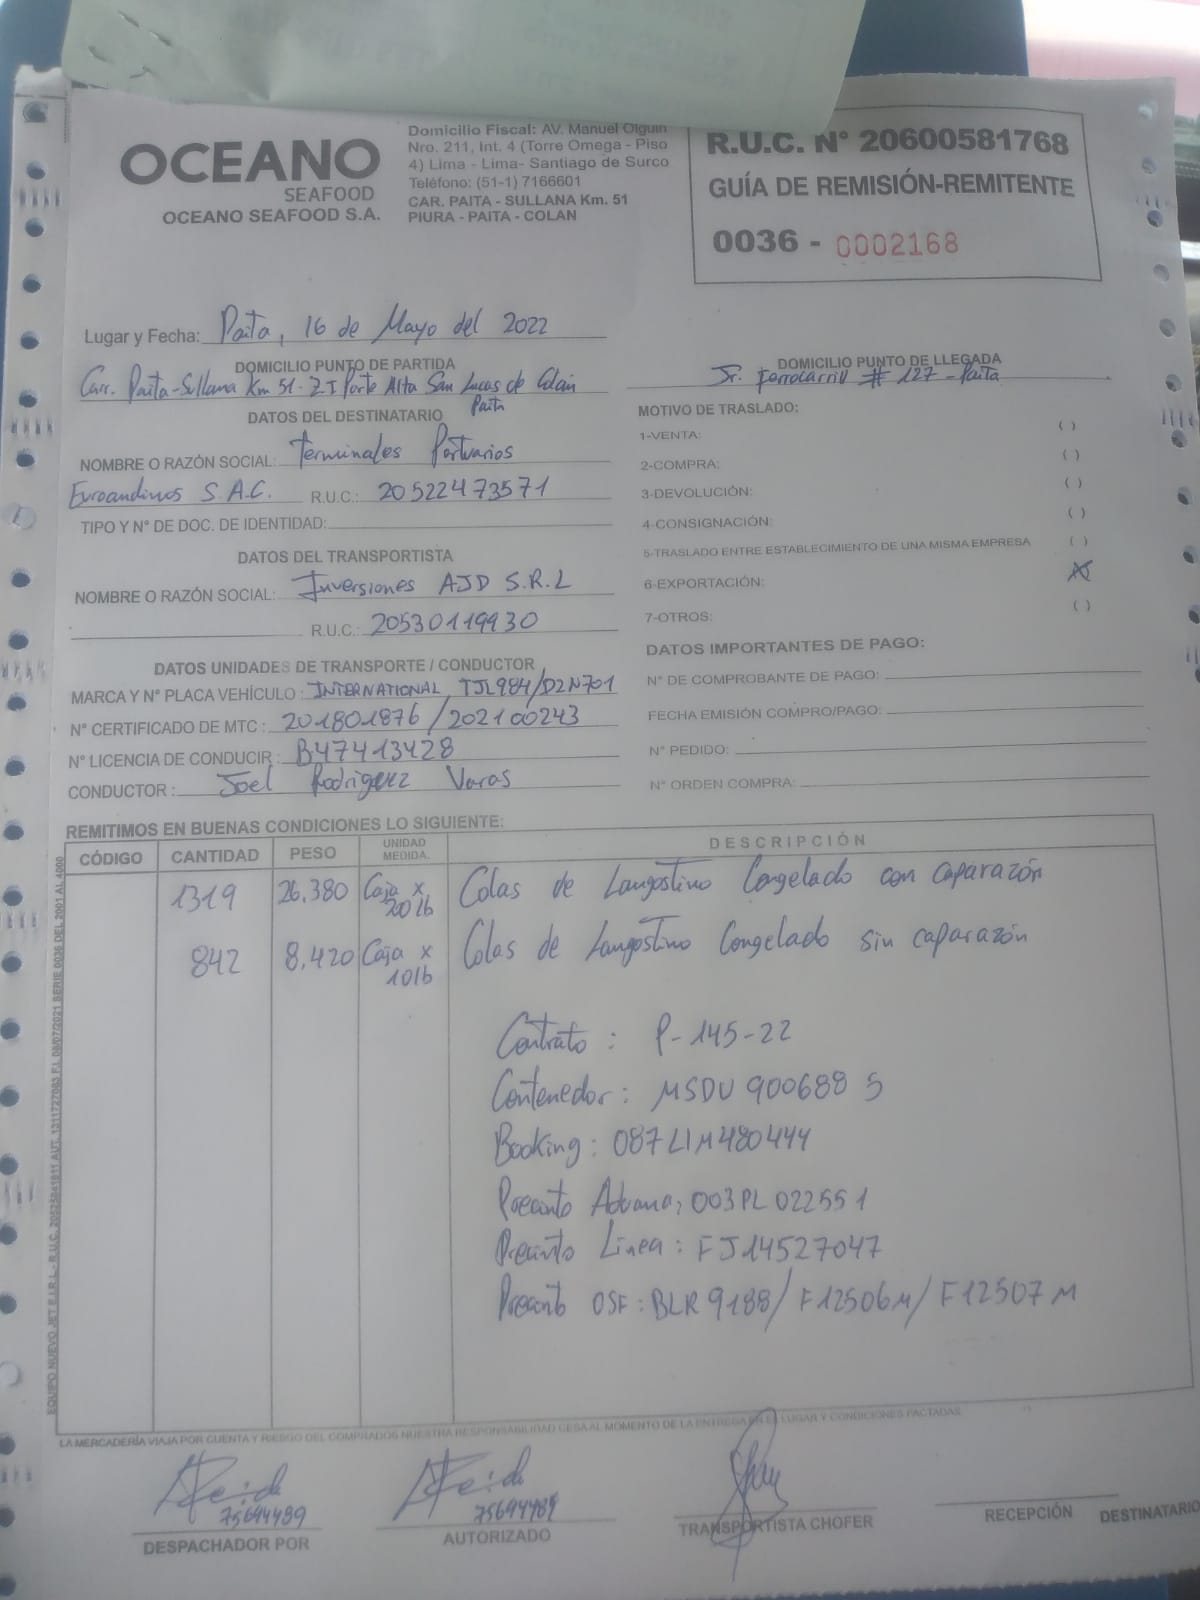 OCEANO
SEAFOOD
OCEANO SEAFOOD S.A.
Domicilio Fiscal: AV. Manuel Olguin
Nro. 211, Int. 4 (Torre Omega - Piso
4) Lima - Lima- Santiago de Surco
Teléfono: (51-1) 7166601
CAR. PAITA - SULLANA Km. 51
PIURA - PAITA - COLAN
R.U.C. N° 20600581768
GUÍA DE REMISIÓN-REMITENTE
0036 - 0002168
Lugar y Fecha: Paita, 16 de Mayo del 2022
DOMICILIO PUNTO DE PARTIDA
Carr. Paita-Sullana Km 51 - Z.I Parte Alta San Lucas de Colán
Paita
DOMICILIO PUNTO DE LLEGADA
Jr. Ferrocarril # 127 - Paita
DATOS DEL DESTINATARIO
NOMBRE O RAZÓN SOCIAL: Terminales Portuarios
Euroandinos S.A.C. R.U.C.: 20522473571
TIPO Y N° DE DOC. DE IDENTIDAD:
DATOS DEL TRANSPORTISTA
NOMBRE O RAZÓN SOCIAL: Inversiones AJD S.R.L
R.U.C.: 20530119930
DATOS UNIDADES DE TRANSPORTE / CONDUCTOR
MARCA Y N° PLACA VEHÍCULO: INTERNATIONAL TJL984/D2N701
N° CERTIFICADO DE MTC: 201801876 / 202100243
N° LICENCIA DE CONDUCIR: B47413428
CONDUCTOR: Joel Rodriguez Varas
MOTIVO DE TRASLADO:
1-VENTA: ( )
2-COMPRA: ( )
3-DEVOLUCIÓN: ( )
4-CONSIGNACIÓN: ( )
5-TRASLADO ENTRE ESTABLECIMIENTO DE UNA MISMA EMPRESA ( )
6-EXPORTACIÓN: (X)
7-OTROS: ( )
DATOS IMPORTANTES DE PAGO:
N° DE COMPROBANTE DE PAGO:
FECHA EMISIÓN COMPRO/PAGO:
N° PEDIDO:
N° ORDEN COMPRA:
REMITIMOS EN BUENAS CONDICIONES LO SIGUIENTE:
CÓDIGO CANTIDAD PESO UNIDAD MEDIDA. DESCRIPCIÓN
1319 26,380 Caja x 20lb Colas de Langostino Congelado con caparazón
842 8,420 Caja x 10lb Colas de Langostino Congelado sin caparazón
Contrato: P-145-22
Contenedor: MSDU 900688 5
Booking: 087LIM480444
Precinto Aduana: 003PL 022551
Precinto Linea: FJ14527047
Precinto OSF: BLR 9188/ F12506M/ F12507M
EQUIPO NUEVO JET E.I.R.L - R.U.C. SERIE 0036 DEL 2001 AL 4000
LA MERCADERÍA VIAJA POR CUENTA Y RIESGO DEL COMPRADOS NUESTRA RESPONSABILIDAD CESA AL MOMENTO DE LA ENTREGA EN EL LUGAR Y CONDICIONES PACTADAS.
75694489
DESPACHADOR POR
75694489
AUTORIZADO
TRANSPORTISTA CHOFER
RECEPCIÓN DESTINATARIO